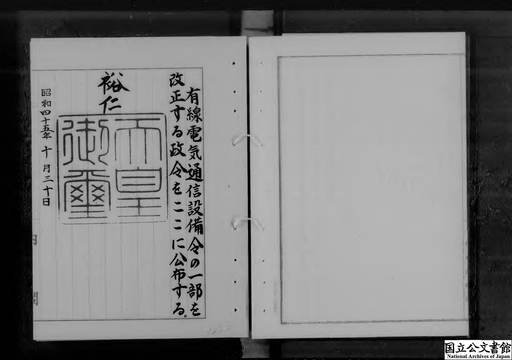 有線電気通信設備令の一部を
改正する政令をここに公布する。
裕仁
天皇
御璽
昭和四十五年十月三十日
国立公文書館
National Archives of Japan